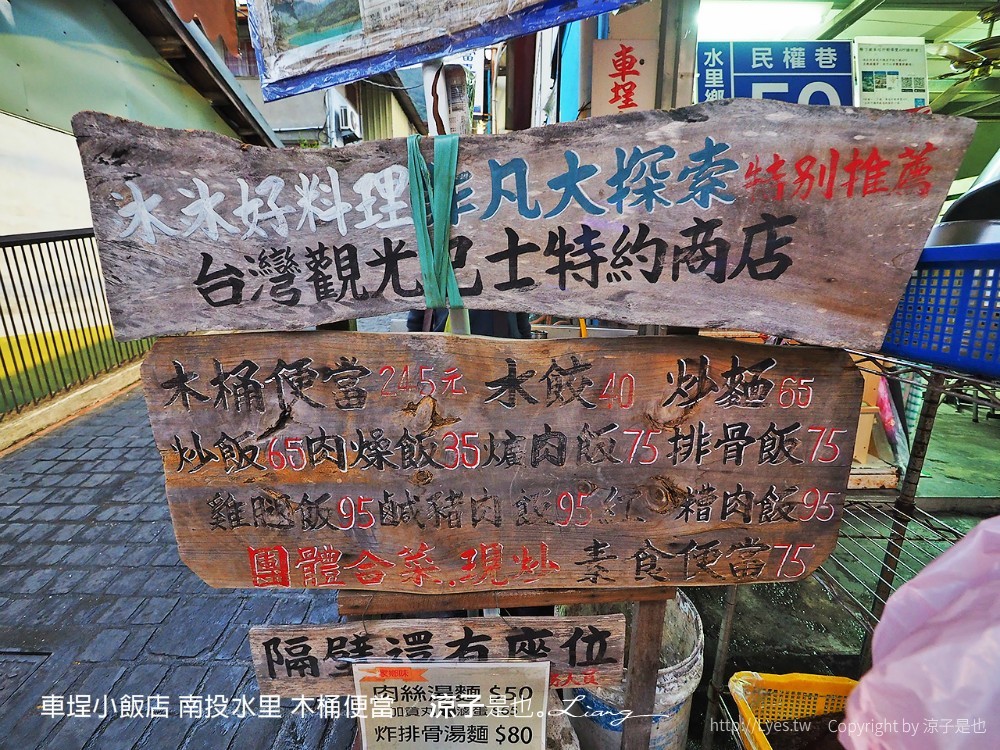 車埕
水里鄉 民權巷
冰冰好料理 非凡大探索 特別推薦
台灣觀光巴士特約商店
木桶便當245元 水餃40 炒麵65
炒飯65 肉燥飯35 爌肉飯75 排骨飯75
雞腿飯95 鹹豬肉飯95 紅糟肉飯95
團體合菜.現炒 素食便當75
隔壁還有座位
肉絲湯麵 $50
炸排骨湯麵 $80
車埕小飯店 南投水里 木桶便當 - 涼子是也。Liang
http://Lyes.tw Copyright by 涼子是也